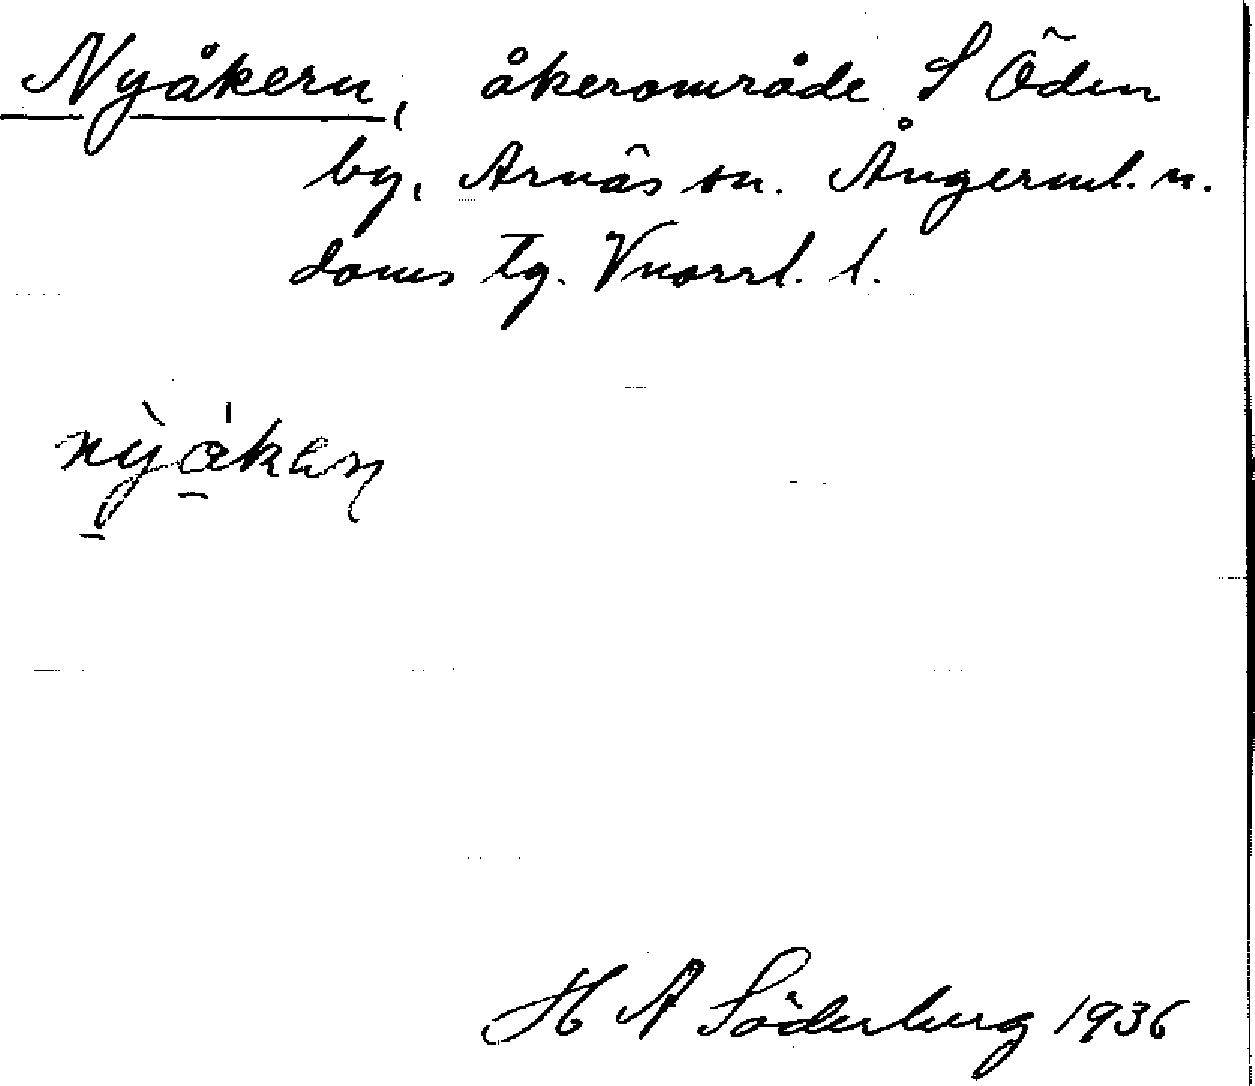 Nyåkern, åkerområde S Öden
by, Arnäs sn. Ångerml. n.
doms tg. Vnorrl. l.
nỳåkeɳ
H A Söderberg 1936